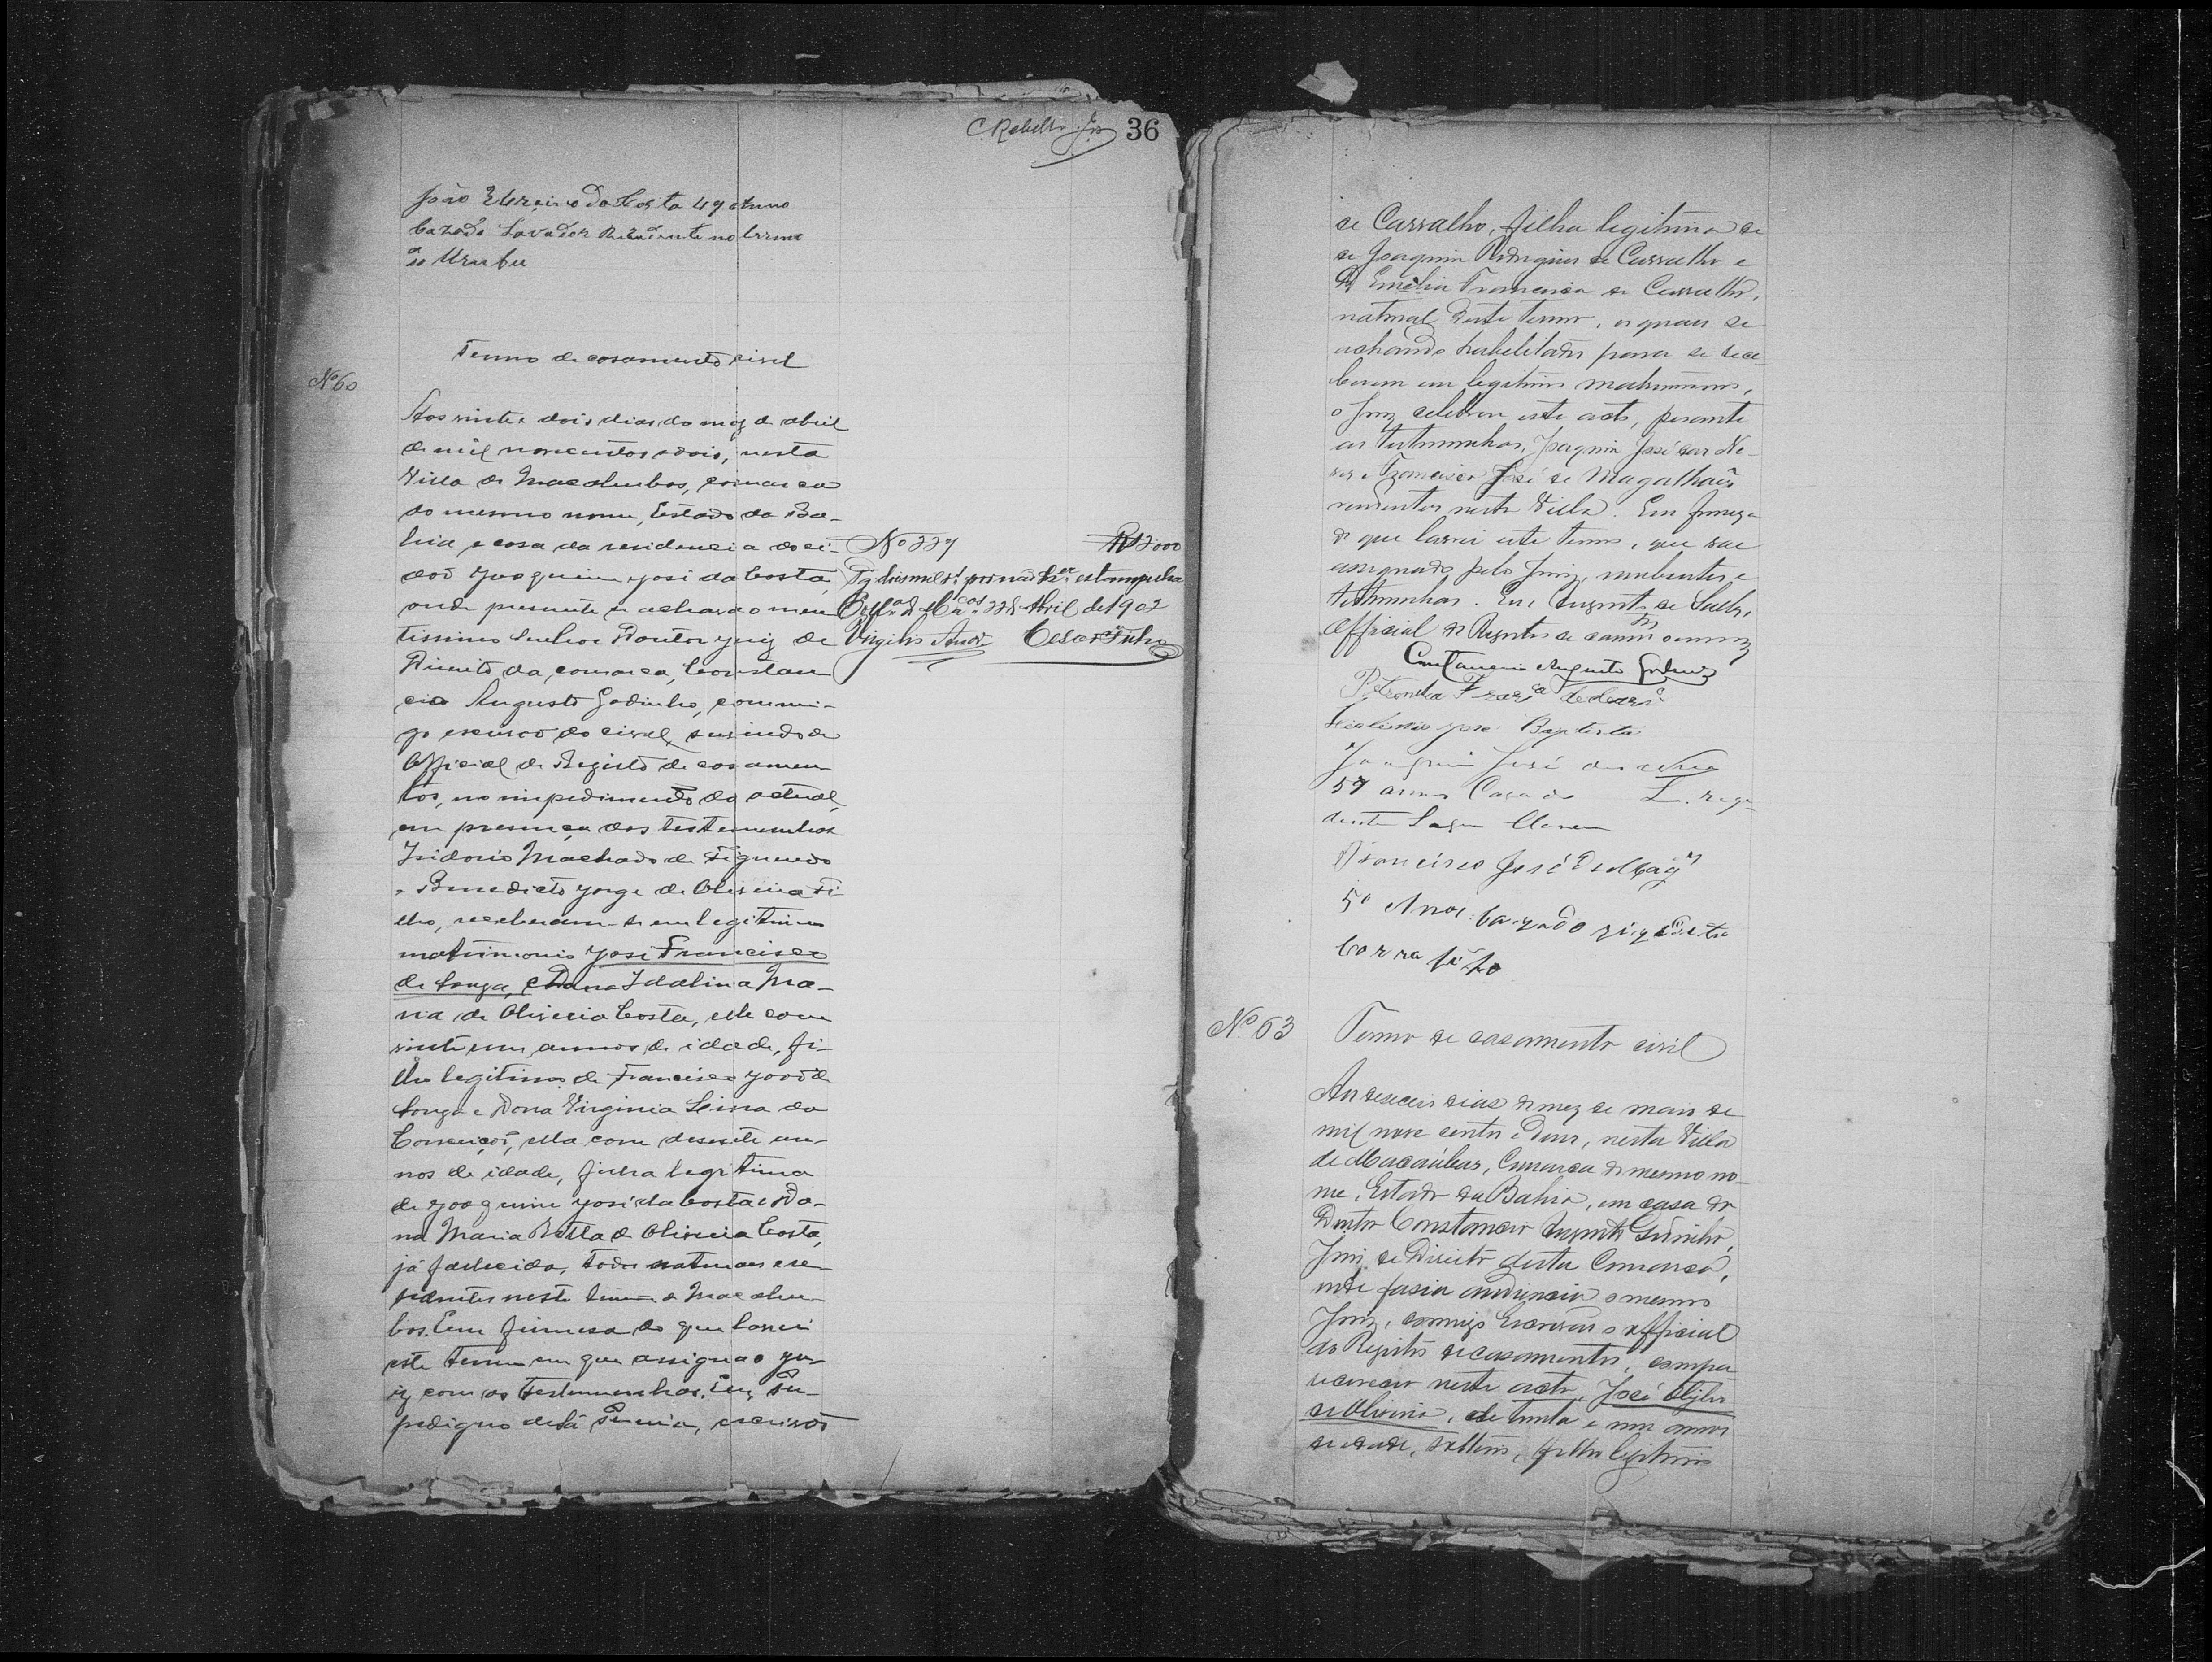 C. Rebello
36
João da Costa 49 annos
Cazado Lavador no termo
do Urubu
Termo de casamento civil
Nº 60
Aos vinte e dois dias do mez de abril
de mil novecentos e dois, nesta
Villa de Macahubas, comarca
do mesmo nome, Estado da Ba-
hia e casa da residencia do ci-
dão Joaquim José da Costa,
onde presente se achava o meri-
tissimo Senhor Doutor Juiz de
Direito da comarca, Constan-
cio Augusto Godinho, commi-
go escrivão do civel, servindo de
Official de Registo de casamen-
tos, no impedimento do actual,
em presença das testemunhas
Isidorio Machado de Figueredo
e Benedicto Jorge de Oliveira Fi-
lho, receberam-se em legitimo
matrimonio José Francisco
de Souza, e Dona Idalina Ma-
ria de Oliveira Costa, elle com
vinte um annos de idade, fi-
lho legitimo de Francisco João de
Souza e Dona Virginia Lima da
Conceição, ella com desesete an-
nos de idade, filha legitima
de Joaquim José da Costa e Do-
na Maria de Oliveira Costa,
já fallecida, todos naturaes e re-
sidentes neste termo de Macahu-
bas. Em firmesa do que lavrei
este termo em que assigna o Ju-
iz com as testemunhas. Eu,
escrivão
Nº 227
R 12000
estampilha
22 de Abril de 1902
Virgilio Cesar Filho
de Carvalho, filha legitima de
de Joaquim Rodrigues de Carvalho e
D. Emelia Francisca de Carvalho,
natural deste termo, os quaes se
achando habelitados para se rece-
berem em legitimo matrimonio,
o Juiz celebrou este acto, perante
as testemunhas, Joaquim José das Ne-
ves e Francisco José de Magalhães
residentes nesta Villa. Em firmeza
do que lavrei este termo, que vae
assignado pelo Juiz, nubentes e
testemunhas. Eu, Augusto de
Official do Registro de casamentos o escrevi
Constancio Augusto Godinho
José Baptista
Joaquim José das Neves
57 annos Casado
Francisco José de Mag
50 Annos Cazado
Nº 63
Termo de casamento civil
Aos deseceis dias do mez de maio de
mil nove centos e Dous, nesta Villa
de Macaúbas, Comarca do mesmo no-
me, Estado da Bahia, em casa do
Doutor Constancio Augusto Godinho,
Juiz de Direito desta Comarca,
onde fasia audiencia o mesmo
Juiz, commigo Escrivão e official
do Registro de casamentos, compa-
receram neste acto, José
de Oliveira, de trinta e um annos
de idade, solteiro, filho legitimo